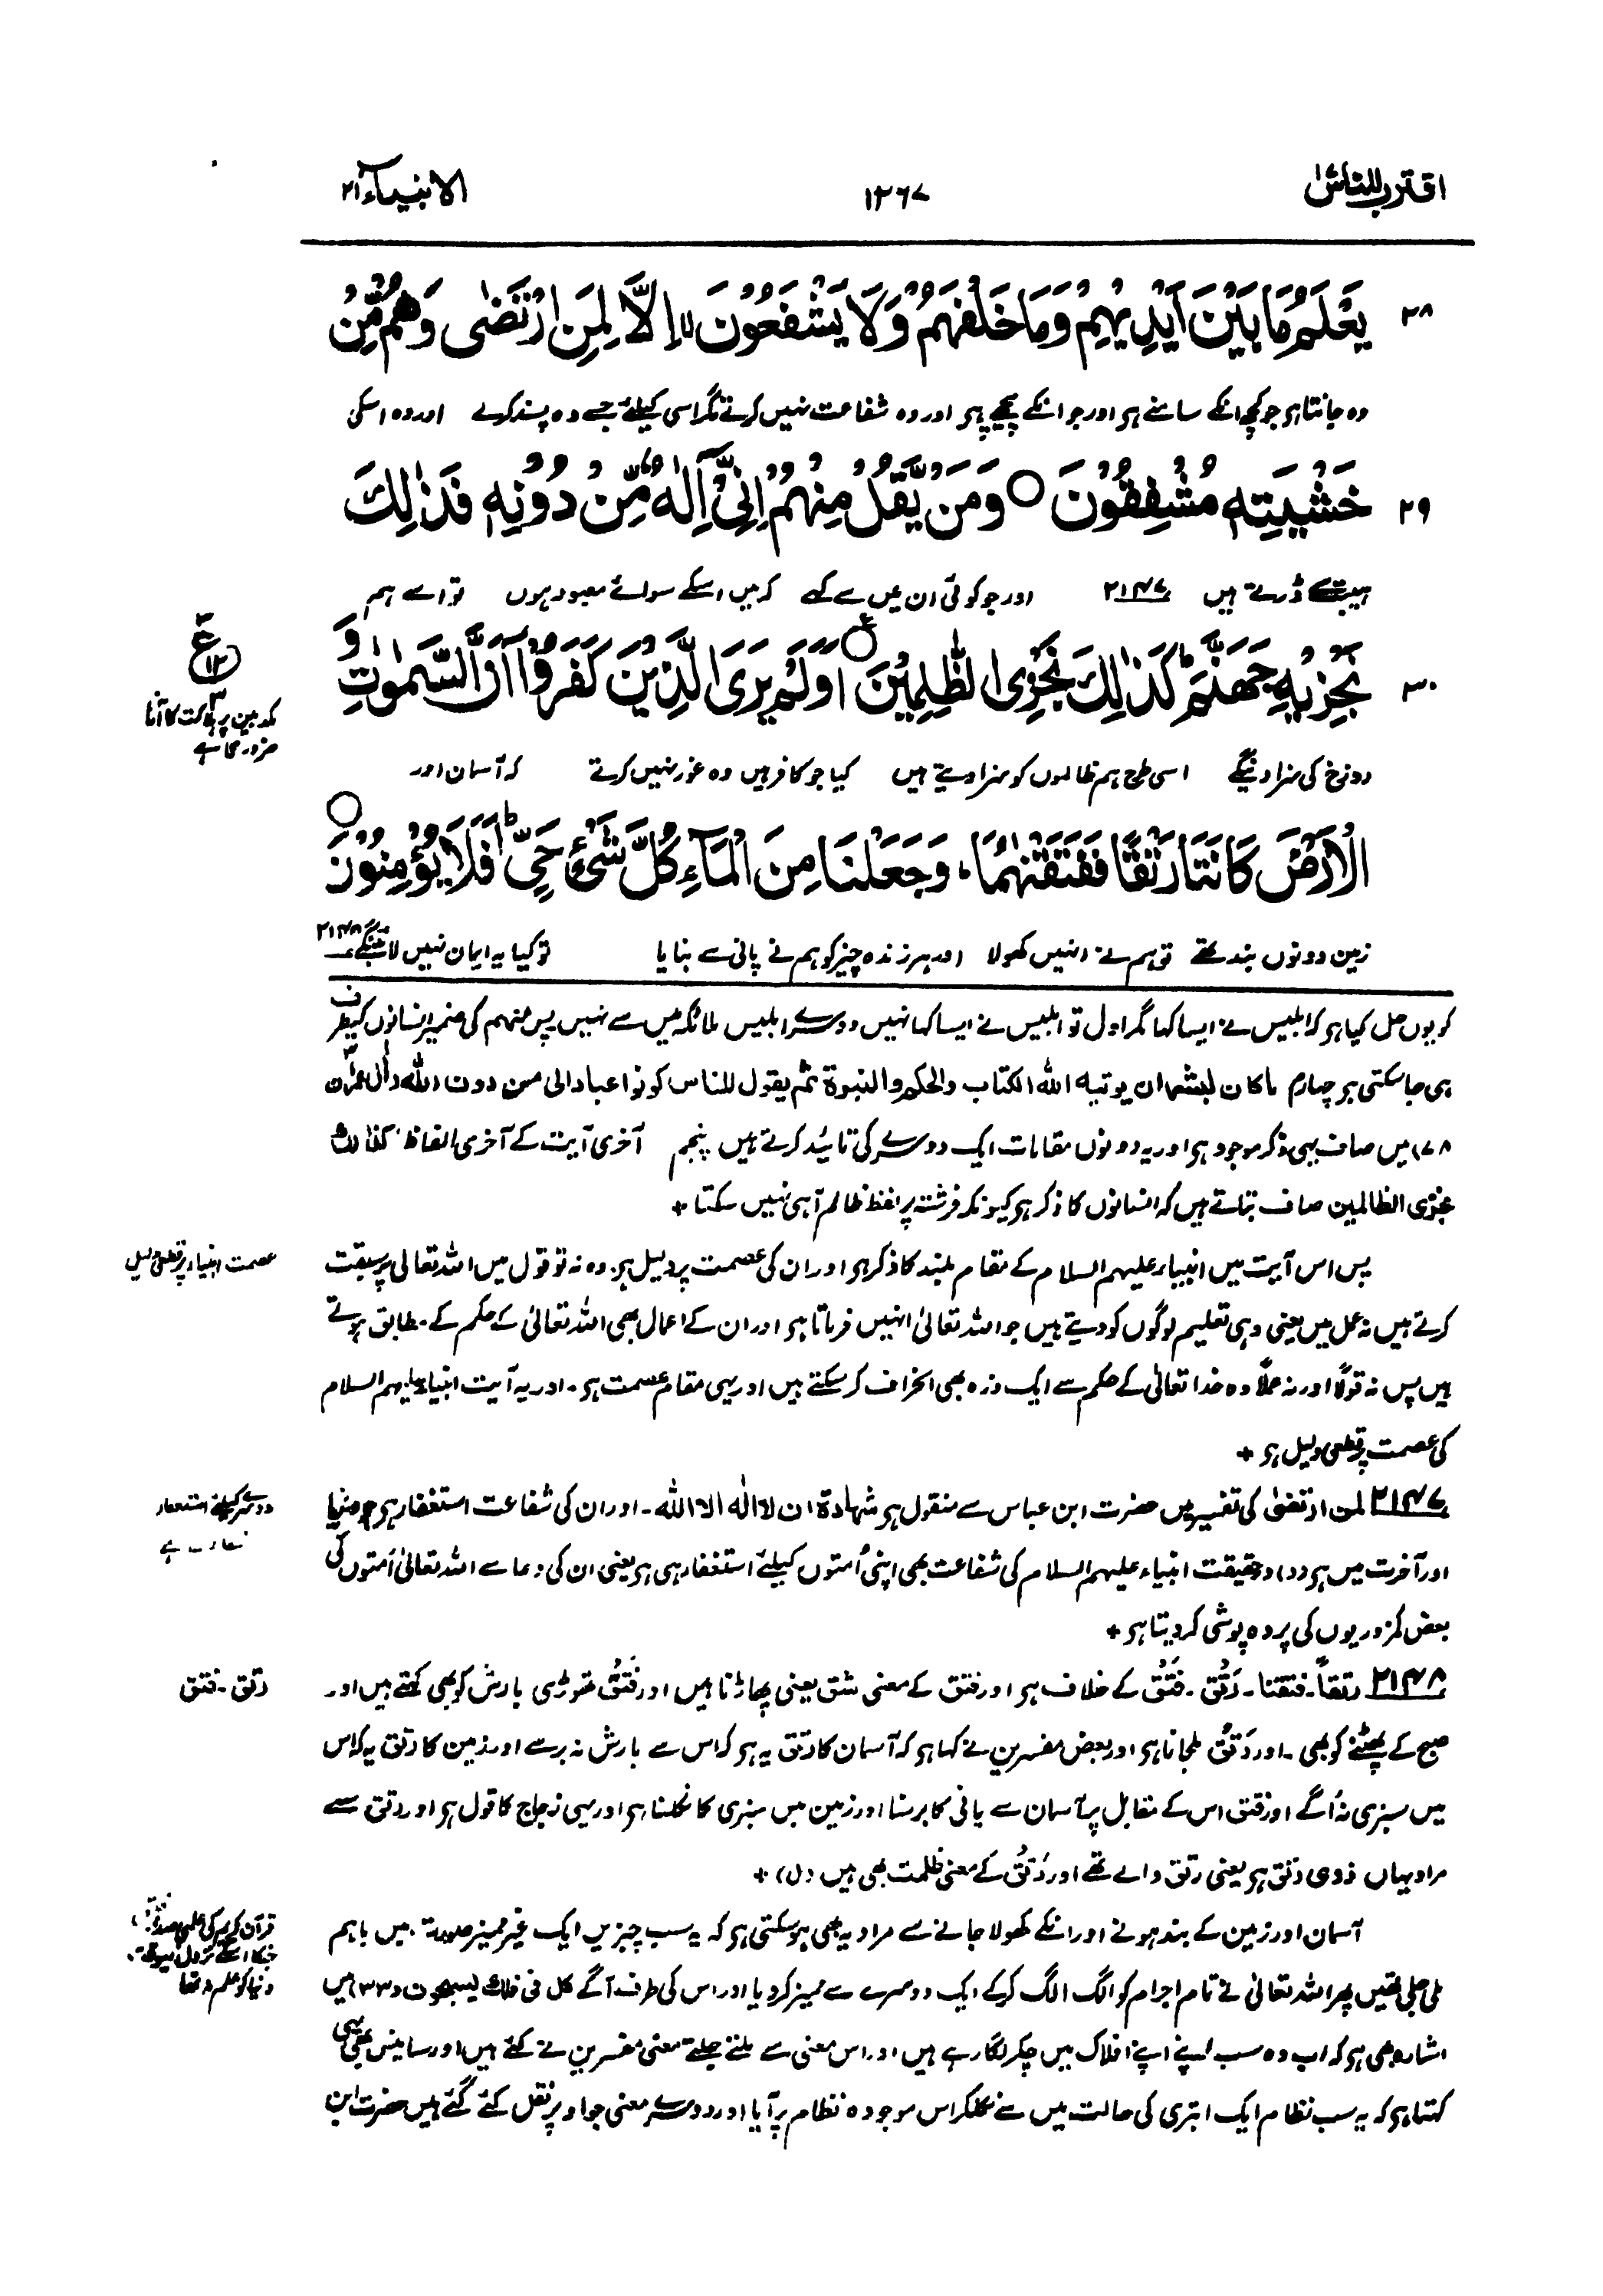 اقترب للناس ۱۷
۱۲۶۷
الانبیآء ۲۱
۲۸ یَعْلَمُ مَا بَیْنَ اَیْدِیْهِمْ وَمَا خَلْفَهُمْ وَلَا یَشْفَعُوْنَ لا اِلَّا لِمَنِ ارْتَضٰی وَهُمْ مِّنْ
وہ جانتا ہو جو کچھ انکے سامنے ہو اور جو انکے پیچھے ہو اور وہ شفاعت نہیں کرتے مگر اسی کیلئے جسے وہ پسند کرے اور وہ اسکی
۲۹ خَشْیَتِهٖ مُشْفِقُوْنَ ○ وَمَنْ یَّقُلْ مِنْهُمْ اِنِّیْٓ اِلٰهٌ مِّنْ دُوْنِهٖ فَذٰلِكَ
ہیبت سے ڈرتے ہیں ۲۱۴۷ اور جو کوئی ان میں سے کہے کہ میں اسکے سوائے معبود ہوں تو اسے ہم
۳۰ نَجْزِیْهِ جَهَنَّمَ ؕ كَذٰلِكَ نَجْزِی الظّٰلِمِیْنَ ○ اَوَلَمْ یَرَی الَّذِیْنَ كَفَرُوْٓا اَنَّ السَّمٰوٰتِ وَ
ع ۱۲
مکذبین پر ہلاکت کا آنا
ضروری ہے
دوزخ کی سزا دینگے اسی طرح ہم ظالموں کو سزا دیتے ہیں کیا جو کافر ہیں وہ غور نہیں کرتے کہ آسمان اور
الْاَرْضَ كَانَتَا رَتْقًا فَفَتَقْنٰهُمَا ، وَجَعَلْنَا مِنَ الْمَآءِ كُلَّ شَیْءٍ حَیٍّ ؕ اَفَلَا یُؤْمِنُوْنَ ○
زمین دونوں بند تھے تو ہم نے انہیں کھولا اور ہر زندہ چیز کو ہم نے پانی سے بنایا تو کیا یہ ایمان نہیں لائینگے ۲۱۴۸
کو یوں حل کیا ہو کہ ابلیس نے ایسا کہا مگر اول تو ابلیس نے ایسا کہا نہیں دوسرے ابلیس ملائکہ میں سے نہیں پس منہم کی ضمیر انسانوں کیطرف
ہی جا سکتی ہو چہارم ما کان لبشر ان یوتیه الله الکتاب والحکم والنبوة ثم یقول للناس کونوا عبادا لی من دون الله (آل عمرٰن
۷۸) میں صاف یہی ذکر موجود ہو اور یہ دونوں مقامات ایک دوسرے کی تائید کرتے ہیں پنجم آخری آیت کے آخری الفاظ کذالك
نجزی الظالمین صاف بتاتے ہیں کہ انسانوں کا ذکر ہو کیونکہ فرشتہ پر لفظ ظالم آ ہی نہیں سکتا +
پس اس آیت میں انبیاء علیہم السلام کے مقام بلند کا ذکر ہو اور ان کی عصمت پر دلیل ہو۔ وہ نہ تو قول میں اللہ تعالی پر سبقت
عصمت انبیاء پر قطعی دلیل
کرتے ہیں نہ عمل میں یعنی وہی تعلیم لوگوں کو دیتے ہیں جو اللہ تعالیٰ انہیں فرماتا ہو اور ان کے اعمال بھی اللہ تعالیٰ کے حکم کے مطابق ہوتے
ہیں پس نہ قولاً اور نہ عملاً وہ خدا تعالیٰ کے حکم سے ایک ذرہ بھی انحراف کر سکتے ہیں اور یہی مقام عصمت ہو۔ اور یہ آیت انبیاء علیہم السلام
کی عصمت پر قطعی دلیل ہو +
۲۱۴۷ لمن ارتضیٰ کی تفسیر میں حضرت ابن عباس سے منقول ہو شہادة ان لا اله الا الله۔ اور ان کی شفاعت استغفار ہو جو دنیا
دوسرے کیلئے استغفار
شفاعت ہے
اور آخرت میں ہو (د) درحقیقت انبیاء علیہم السلام کی شفاعت بھی اپنی اُمتوں کیلئے استغفار ہی ہو یعنی ان کی دعا سے اللہ تعالیٰ اُمتوں کی
بعض کمزوریوں کی پردہ پوشی کر دیتا ہو +
۲۱۴۸ رتقاً۔ فتقنا۔ رَتْق۔ فَتْق کے خلاف ہو اور فتق کے معنی شق یعنی پھاڑنا ہیں اور فَتْق تھوڑی بارش کو بھی کہتے ہیں اور
رتق ۔ فتق
صبح کے پھٹنے کو بھی۔ اور رَتْق ملجانا ہو اور بعض مفسرین نے کہا ہو کہ آسمان کا رتق یہ ہو کہ اس سے بارش نہ برسے اور زمین کا رتق یہ کہ اس
میں سبزی نہ اُگے اور فتق اس کے مقابل پر آسمان سے پانی کا برسنا اور زمین میں سبزی کا نکلنا ہو اور یہی زجاج کا قول ہو اور رتق سے
مراد یہاں ذوی رتق ہو یعنی رتق والے تھے اور رَتْق کے معنی ظلمت بھی ہیں (ل) +
آسمان اور زمین کے بند ہونے اور انکے کھولا جانے سے مراد یہ بھی ہو سکتی ہو کہ یہ سب چیزیں ایک غیر ممیز صورت میں باہم
قرآن کریم کی علمی صداقتیں
جنکا اسکے نزول کے وقت
دنیا کو علم نہ تھا
ملی جلی تھیں پھر اللہ تعالیٰ نے تمام اجرام کو الگ الگ کرکے ایک دوسرے سے ممیز کر دیا اور اس کی طرف آگے کل فی فلك یسبحون (۳۳) میں
اشارہ بھی ہو کہ اب وہ سب اپنے اپنے افلاک میں چکر لگا رہے ہیں اور اس معنی سے ملتے جلتے معنی مفسرین نے کئے ہیں اور سائینس بھی یہی
کہتا ہو کہ یہ سب نظام ایک ابتری کی حالت میں سے نکلکر اس موجودہ نظام پر آیا اور دوسرے معنی جو اوپر نقل کئے گئے ہیں حضرت ابن